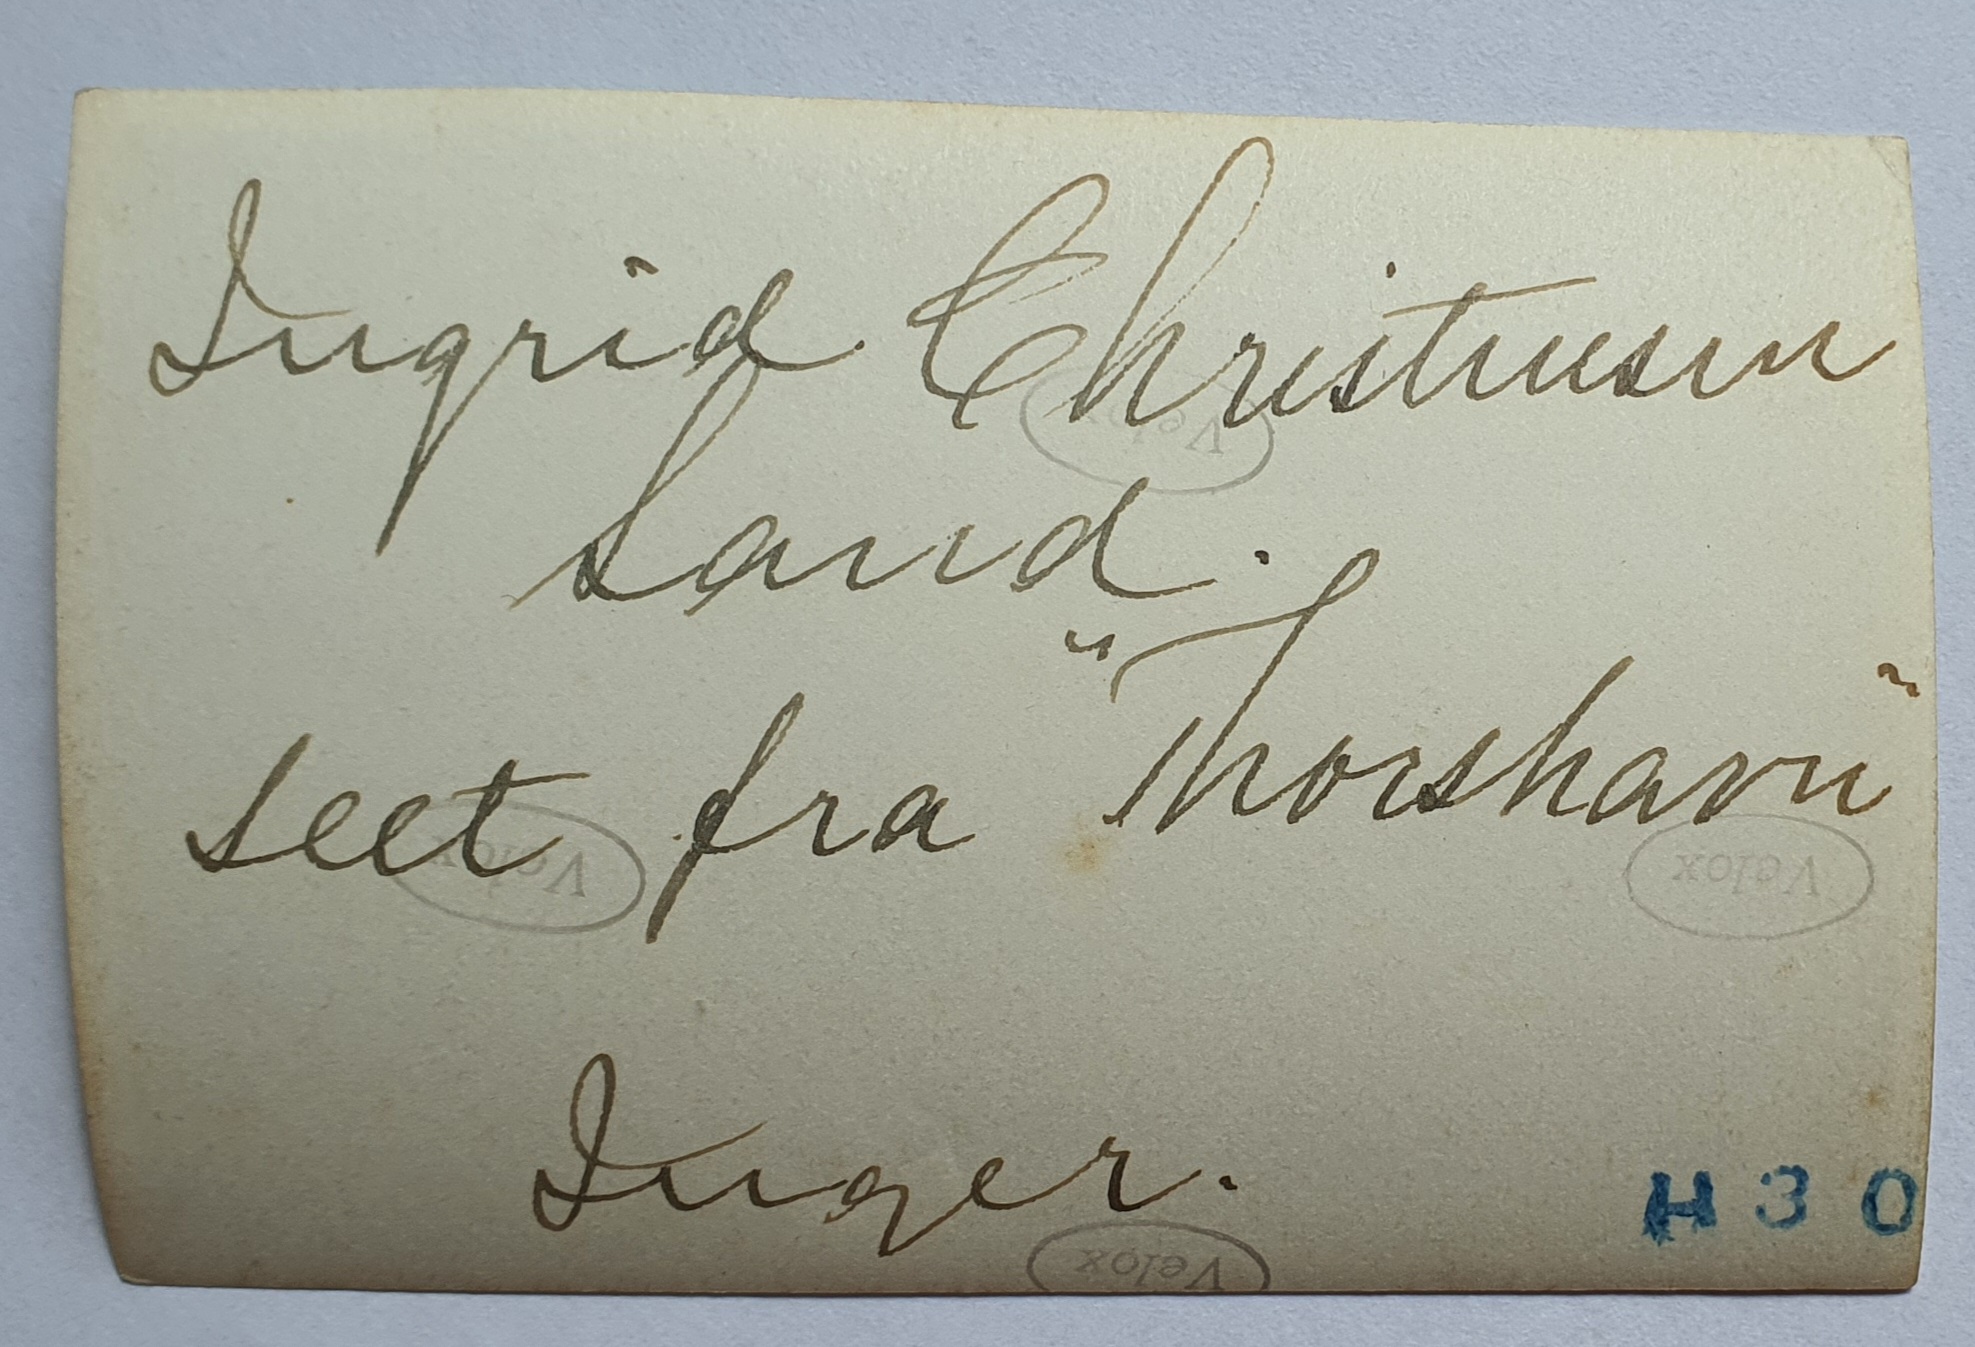 Ingrid Christensen
Land.
seet fra "Thorshavn"
Inger.
H 3 0
Velox
Velox
Velox
Velox